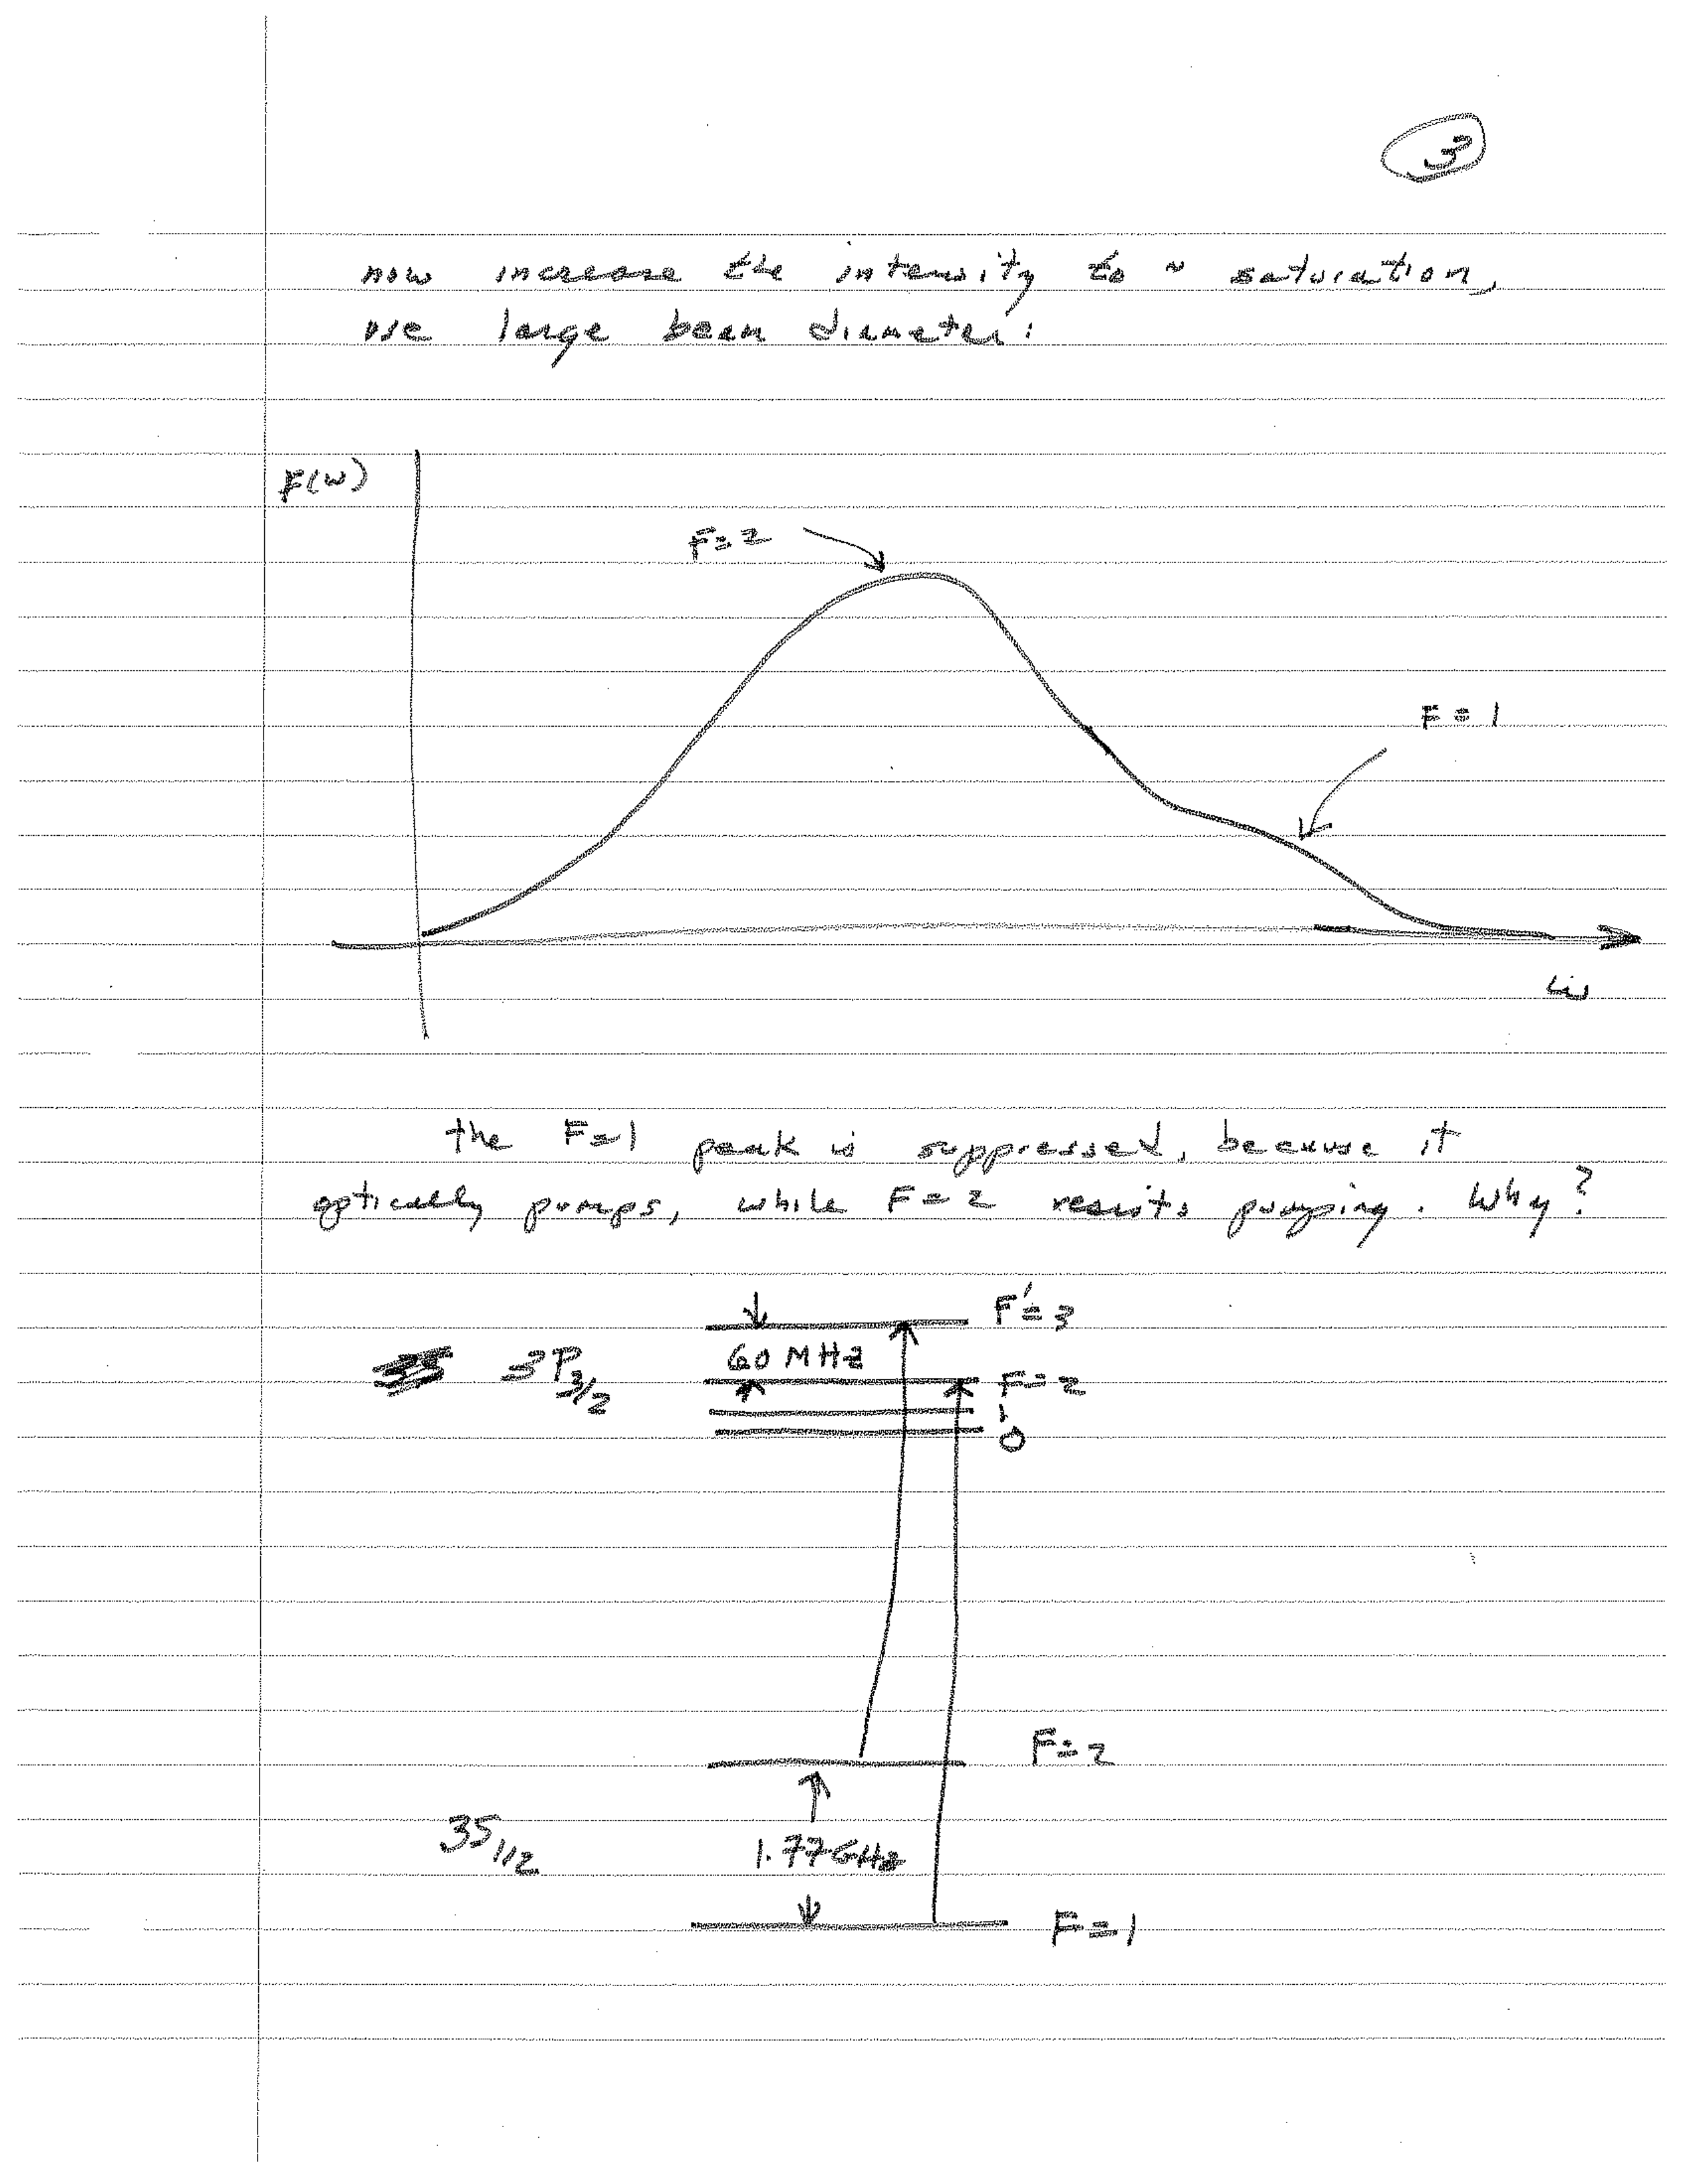 3
now increase the intensity to ~ saturation,
use large beam diameter:
F(ω)
F=2
F=1
ω
the F=1 peak is suppressed, because it
optically pumps, while F=2 resists pumping. Why?
F'=3
60 MHz
3P3/2
F=2
1
0
F=2
3S1/2
1.77 GHz
F=1